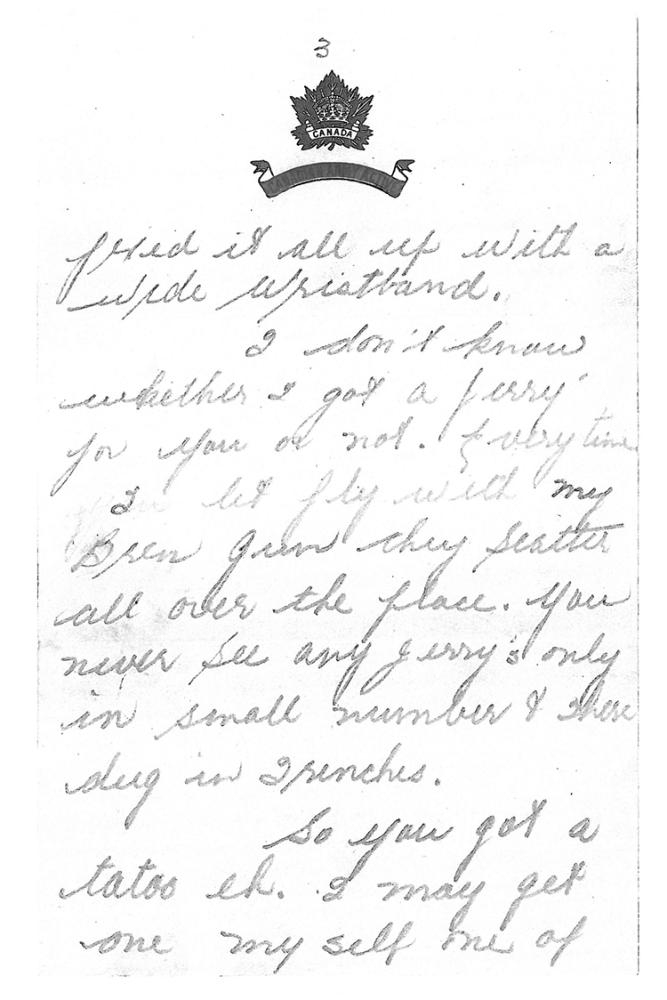 3
CANADA
CANADIAN ARMY (ACTIVE)
fixed it all up with a
wide wristband.
I don't know
whether I got a jerry
for you or not. Everytime
I let fly with my
Bren gun they scatter
all over the place. You
never see any jerry's only
in small number & there
dug in trenches.
So you got a
tatoo eh. I may get
one my self one of